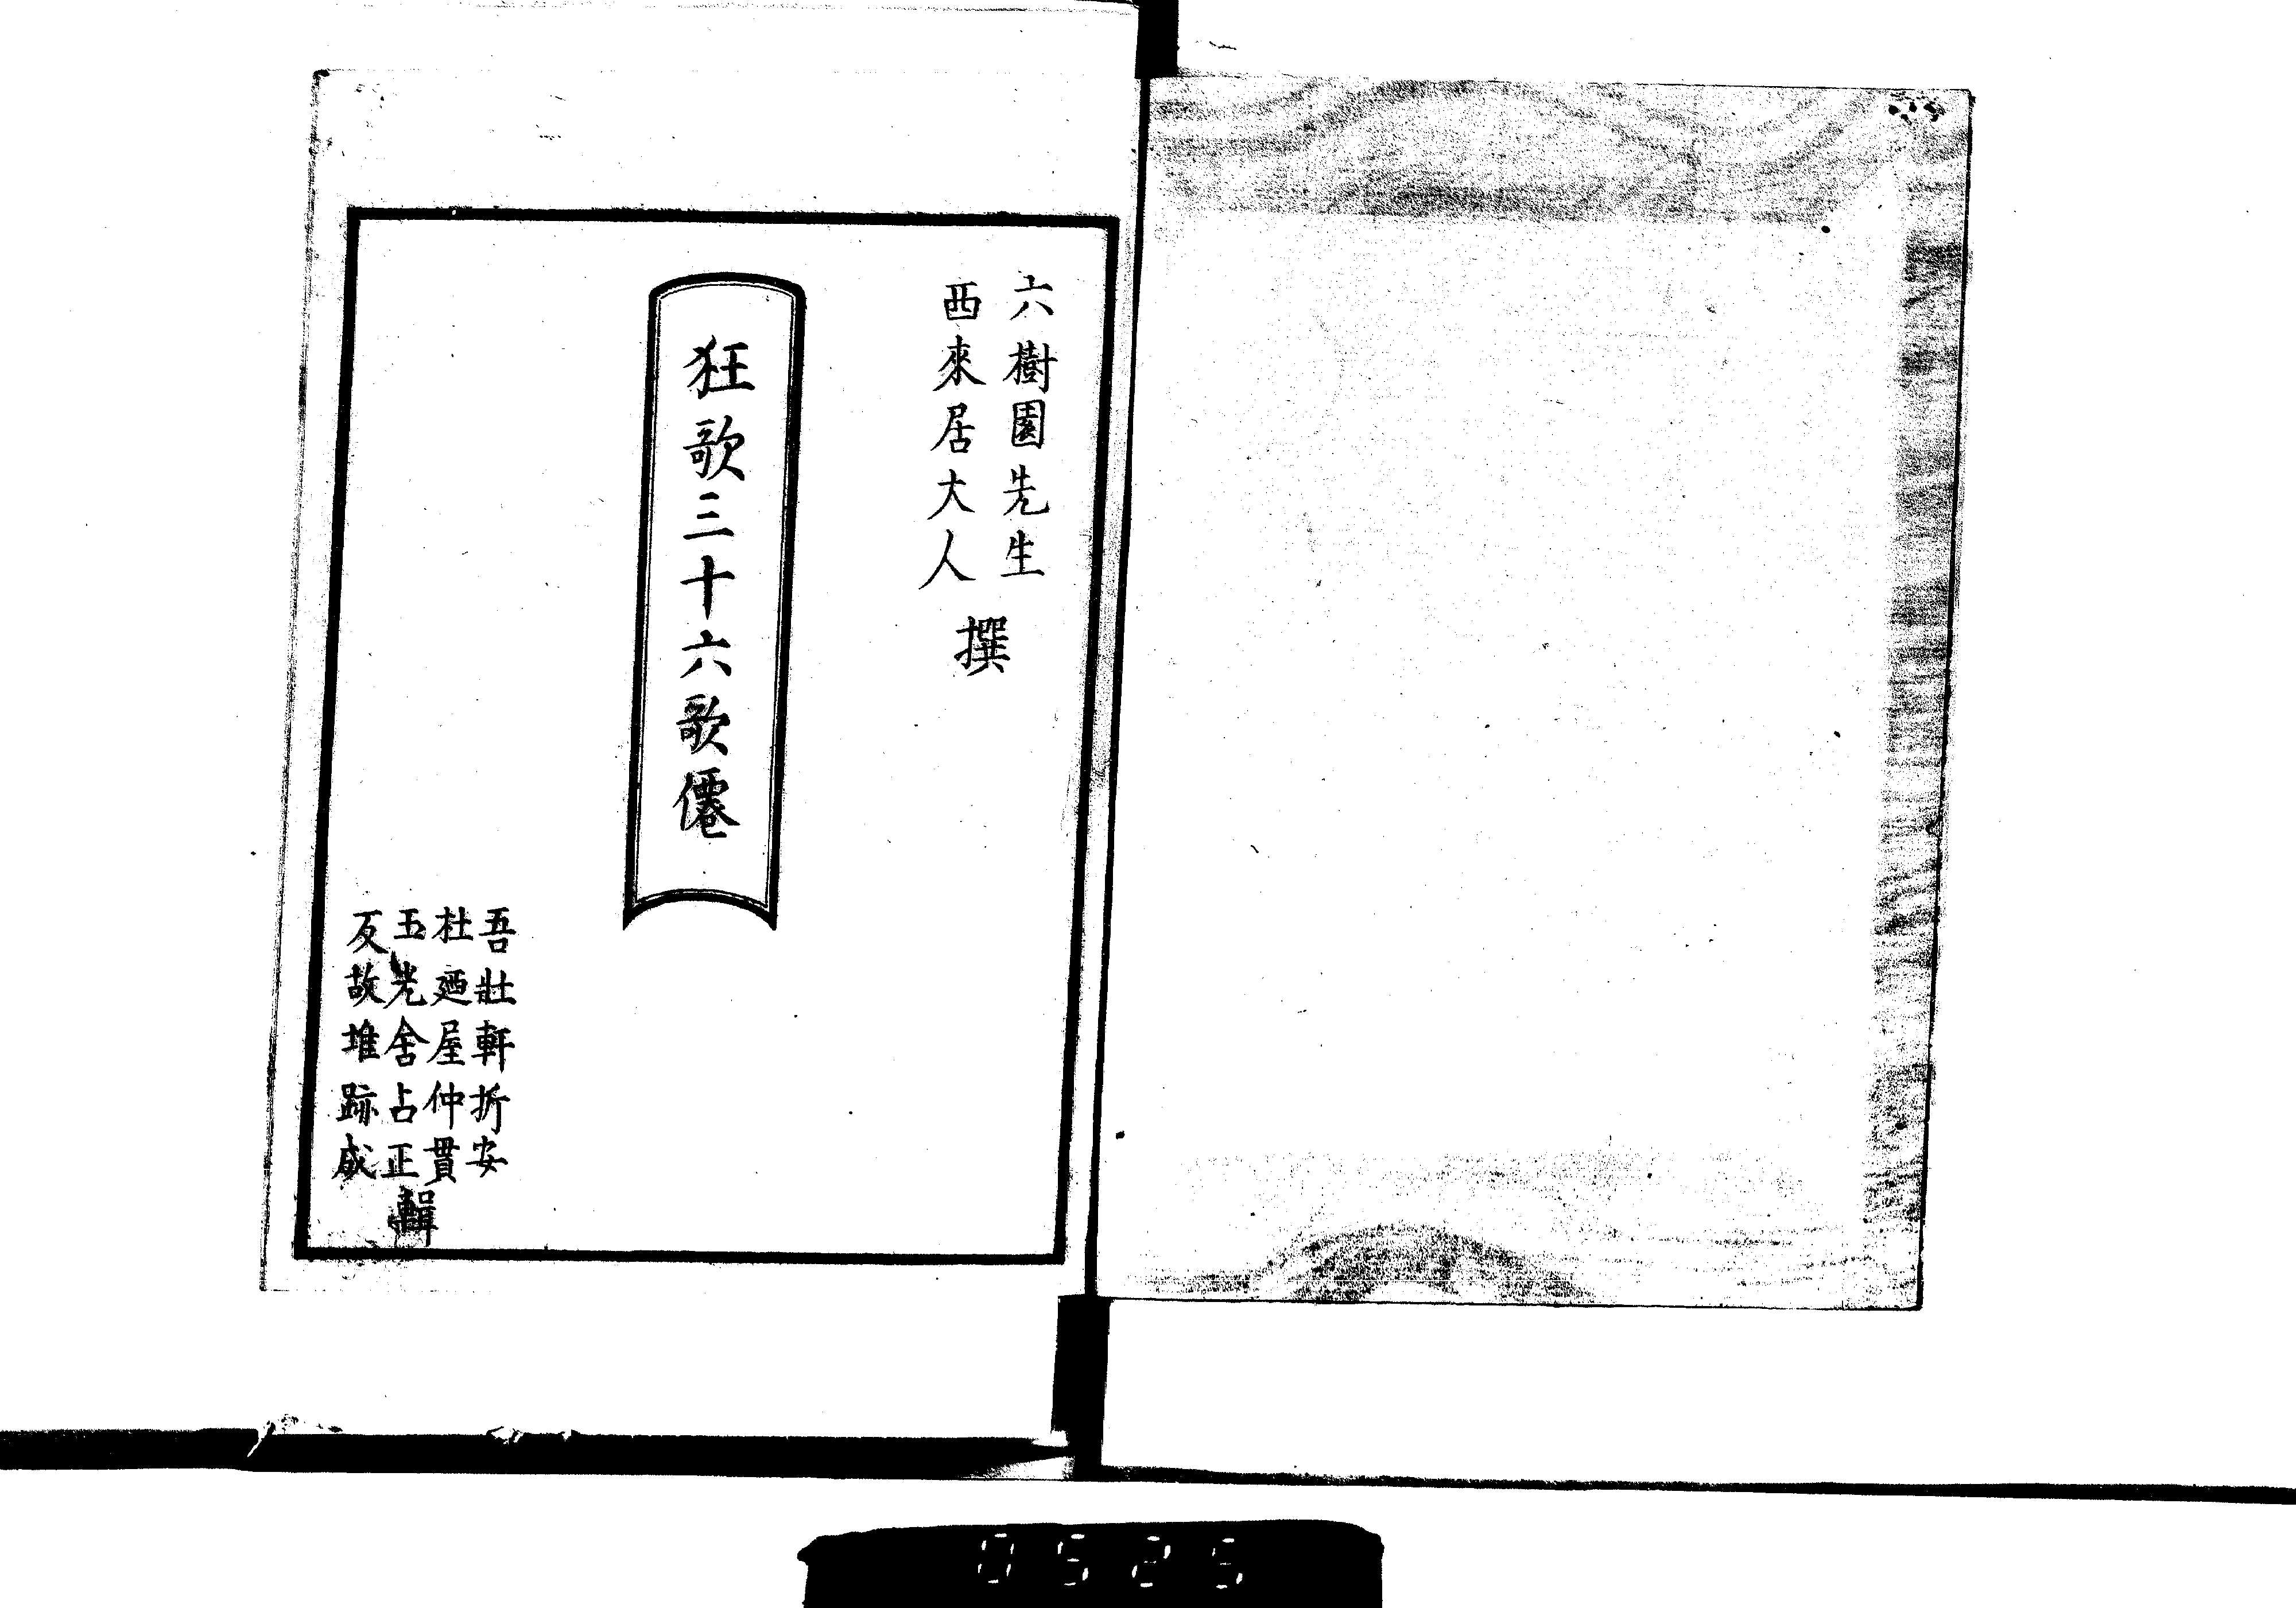 六樹園先生
西來居大人
撰
狂歌三十六歌僊
吾壯軒折安
杜廼屋仲貫
玉光舎占正
反故堆跡成
輯
0525